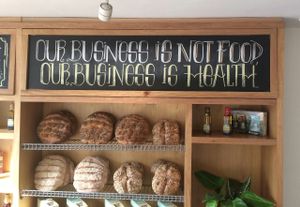 OUR BUSINESS IS NOT FOOD,
OUR BUSINESS IS HEALTH,